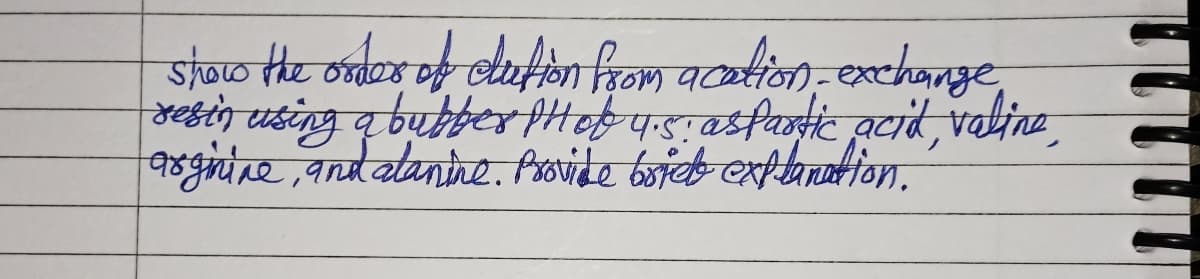 show the order of elution from a cation-exchange
resin using a buffer PH of 4.5: aspartic acid, valine,
arginine, and alanine. Provide brief explanation.